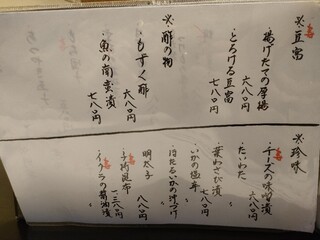 ※豆富
・揚げたての厚揚
六八〇円
・とろける豆富
七八〇円
※酢の物
・もずく酢
六八〇円
・魚の南蛮漬
七八〇円
※珍味
・チーズの味噌漬
六八〇円
・たいわた
・葉わさび漬
七八〇円
・いかの塩辛
・ほたるいかの沖づけ
明太子
八八〇円
・子持昆布
一三八〇円
・イクラの醤油漬